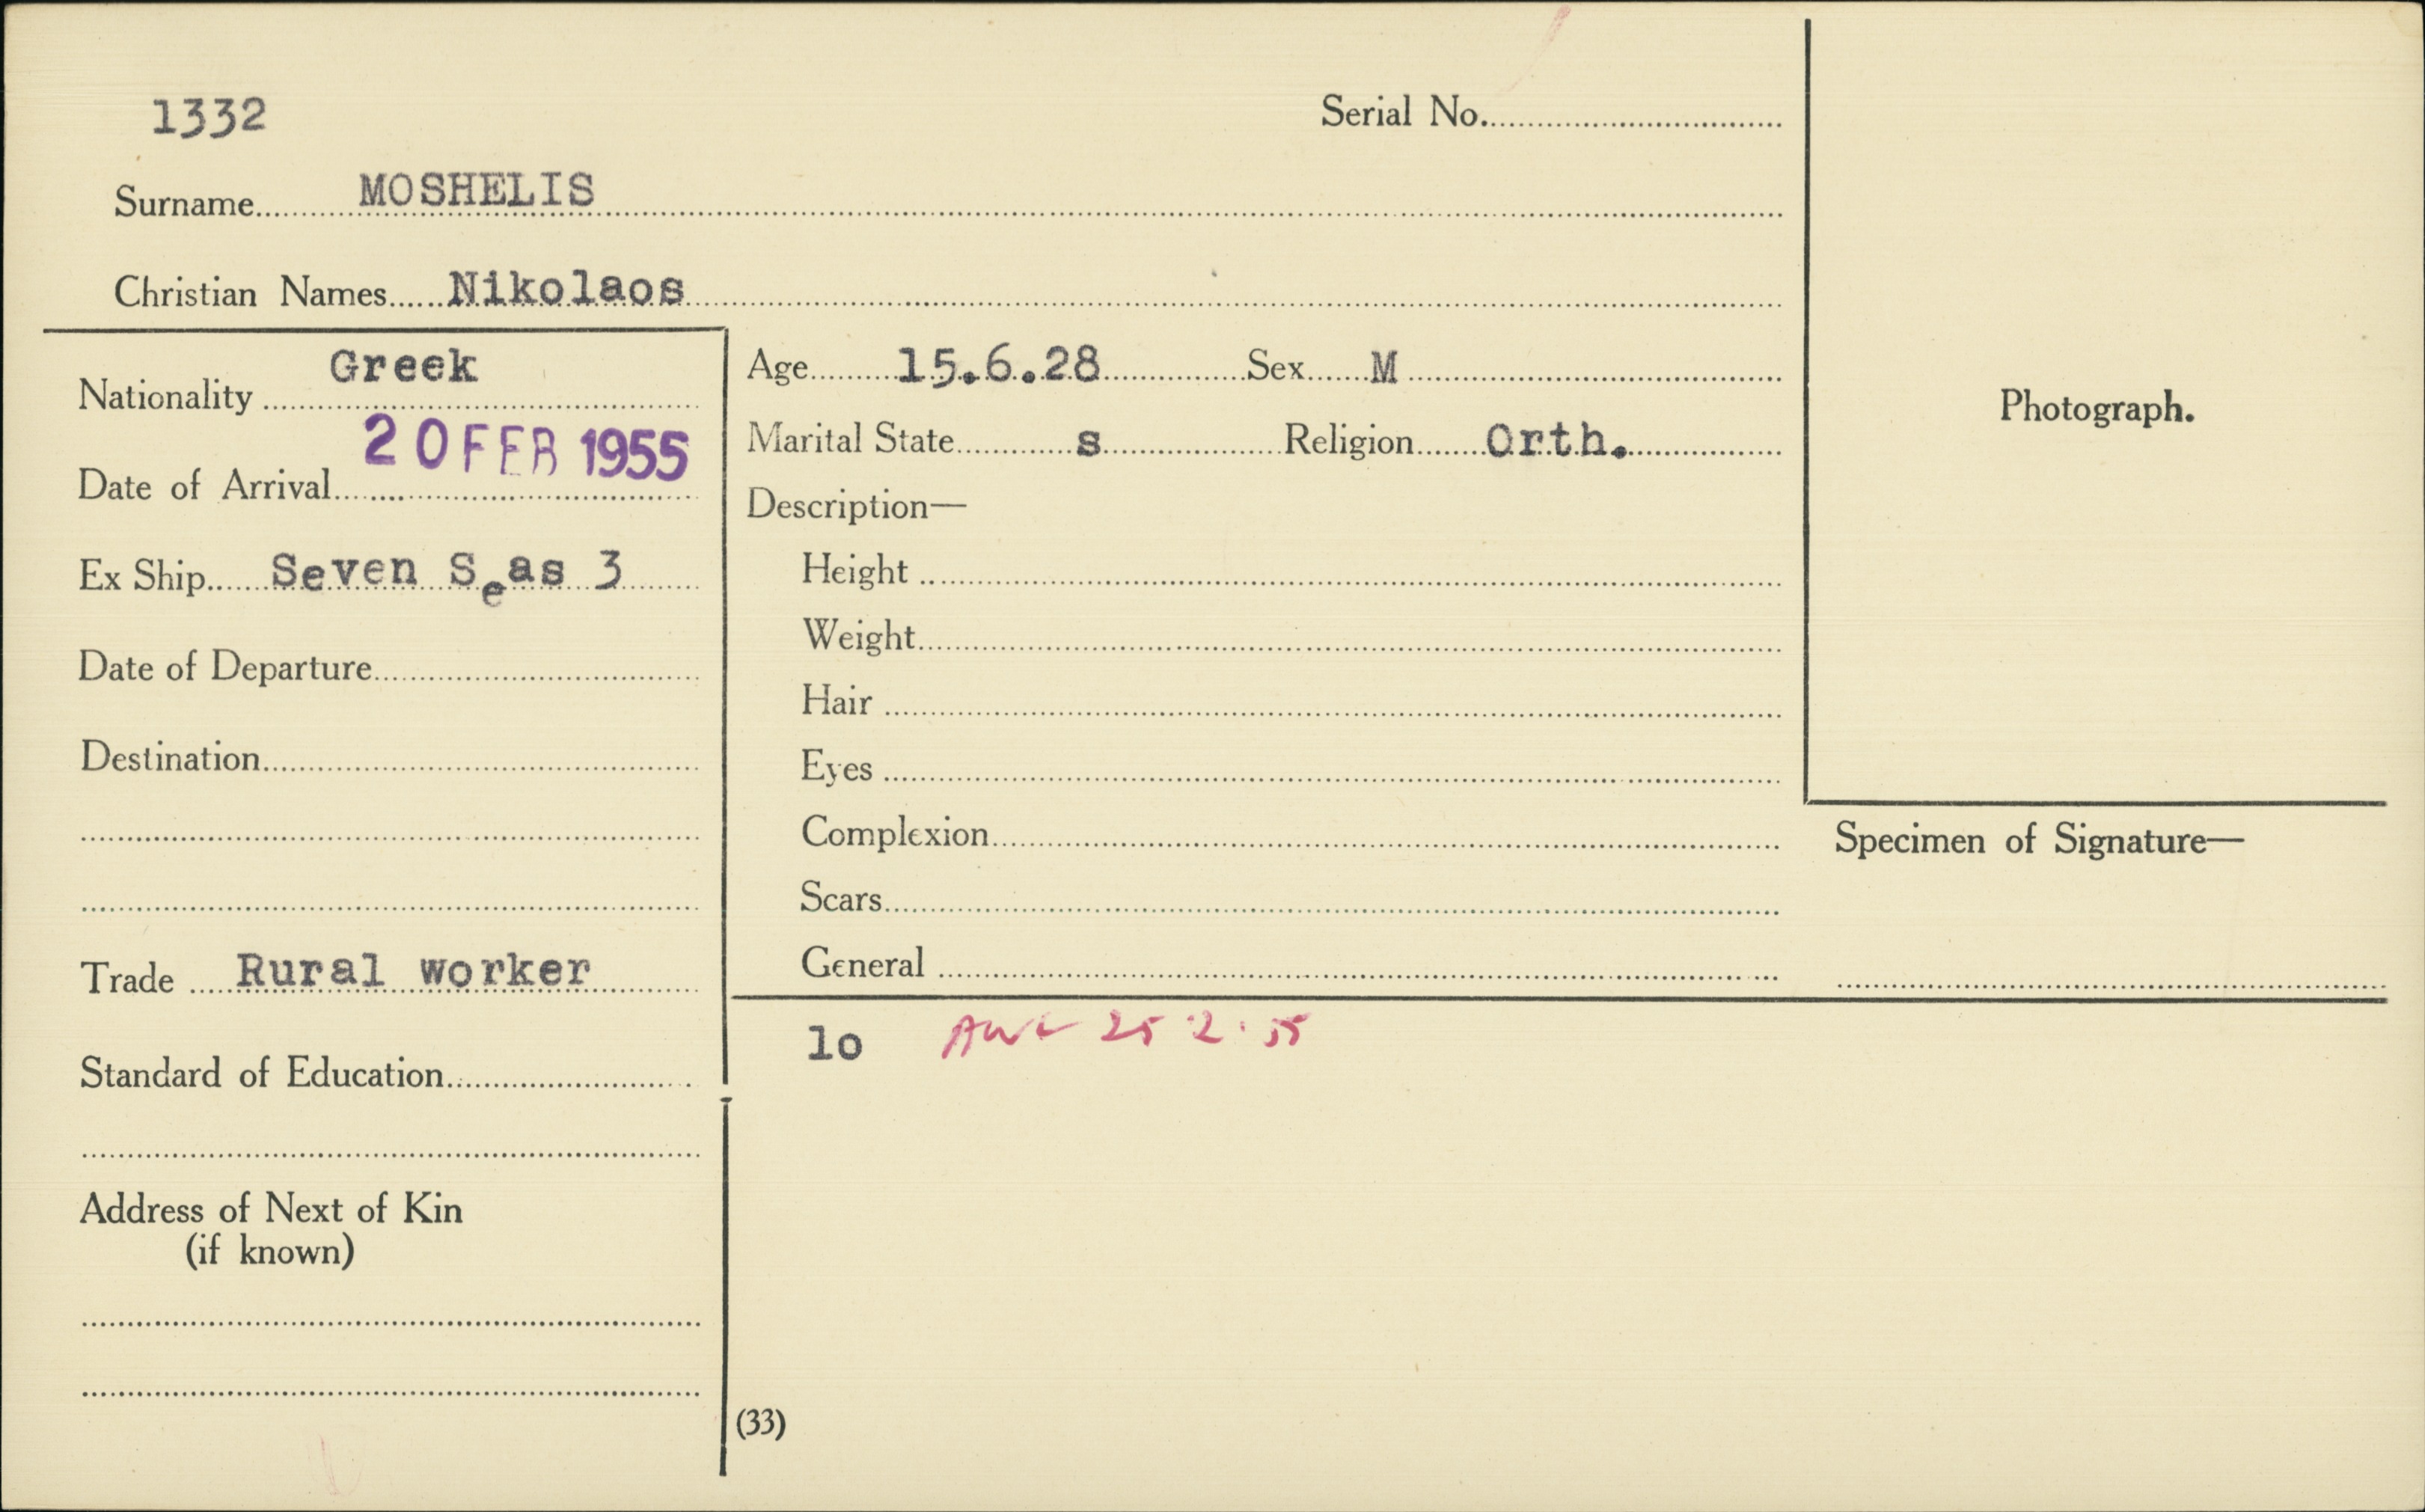 1332
Serial No.
Surname MOSHELIS
Christian Names Nikolaos
Nationality Greek
Date of Arrival 20 FEB 1955
Ex Ship Seven Seas 3
Date of Departure
Destination
Trade Rural worker
Standard of Education
Address of Next of Kin
(if known)
Age 15.6.28 Sex M
Marital State s Religion Orth.
Description—
Height
Weight
Hair
Eyes
Complexion
Scars
General
Photograph.
Specimen of Signature—
lo 25 2.55
(33)